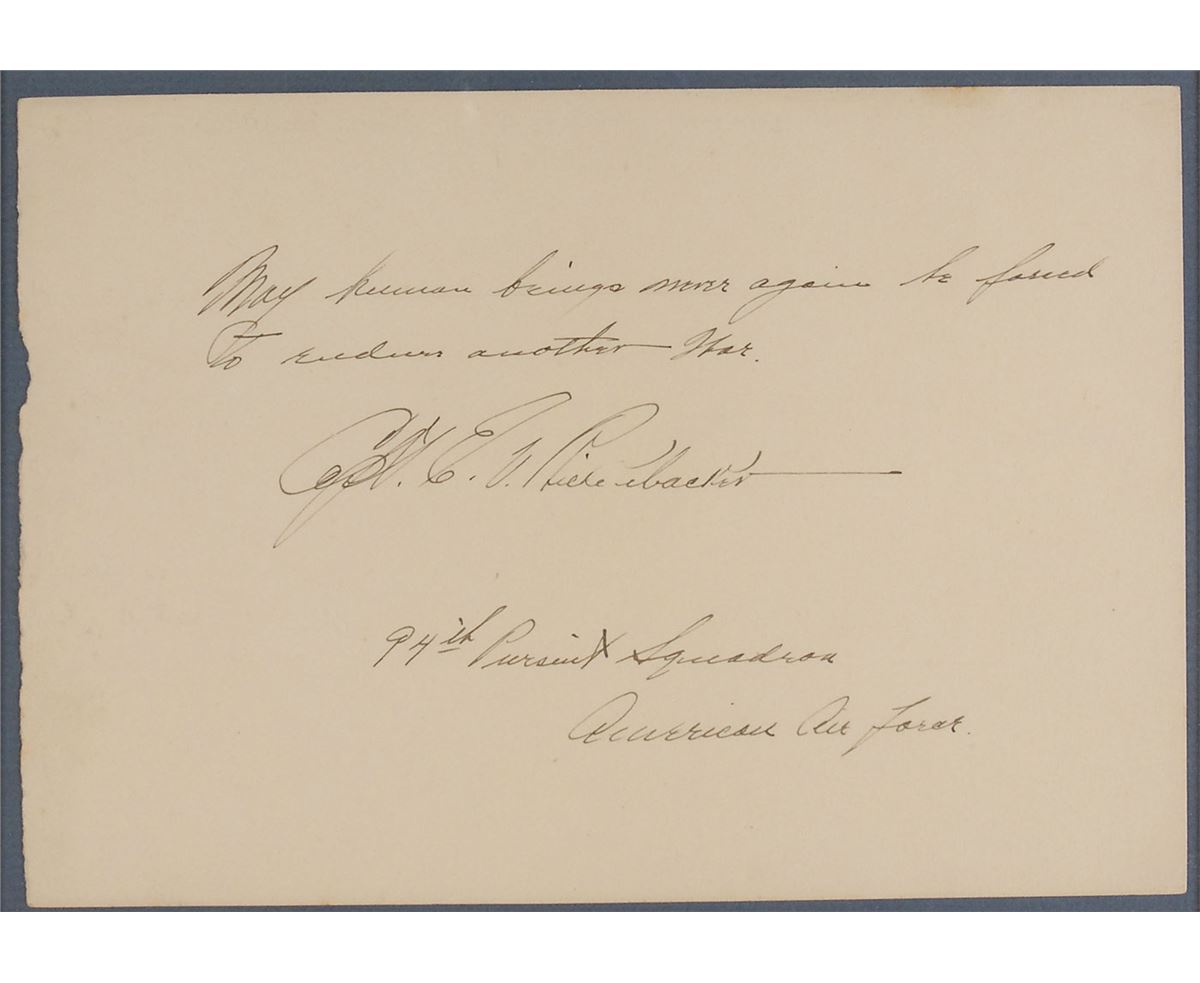 May human beings never again be forced
To endure another War.
Capt. E. V. Rickenbacker
94th Pursuit Squadron
American Air Force.